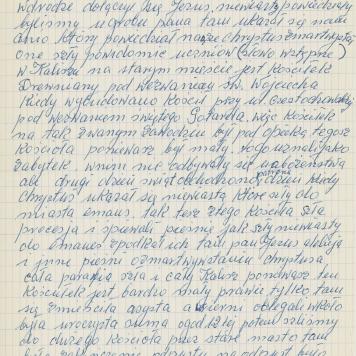 w drodze dołączył się Jezus, niewiasty powiedziały
byliśmy u grobu pana tam ukazał się nam
anioł który powiedział nasze Chrystus zmartwystał
one szły powiadomić uczniów (słowo wstępne)
w Kaliszu na starym mieście jest kościółek
Drewniany pod wezwaniem św. Wojciecha
kiedy wybudowano kościół przy ul. Częstochowskiej
pod wezwaniem świętego Gotarda, więc kościółek
na tak zwanym zawodziu był pod opieką tegoż
kościoła ponieważ był mały, uznali jako
zabytek. w nim nie odbywały się nabożeństwa
ale drugi dzień świąt obchodzono dzień kiedy
Chrystus ukazał się niewiastą które szły do
miasta emaus, tak też z tego kościoła szła
procesja i śpiewali pieśnie jak szły niewiasty
do emaus spotkał ich tam pan Jezus aleluja
i inne pieśni o zmartwywstaniu Chrystusa
cała parafia szła i cały Kalisz ponieważ ten
kościółek jest bardzo mały prawie tylko tam
się zmieściła asysta a wierni oblegali wkoło
była uroczysta suma o god. potem szliśmy
do dużego kościoła przez stare miasto tam